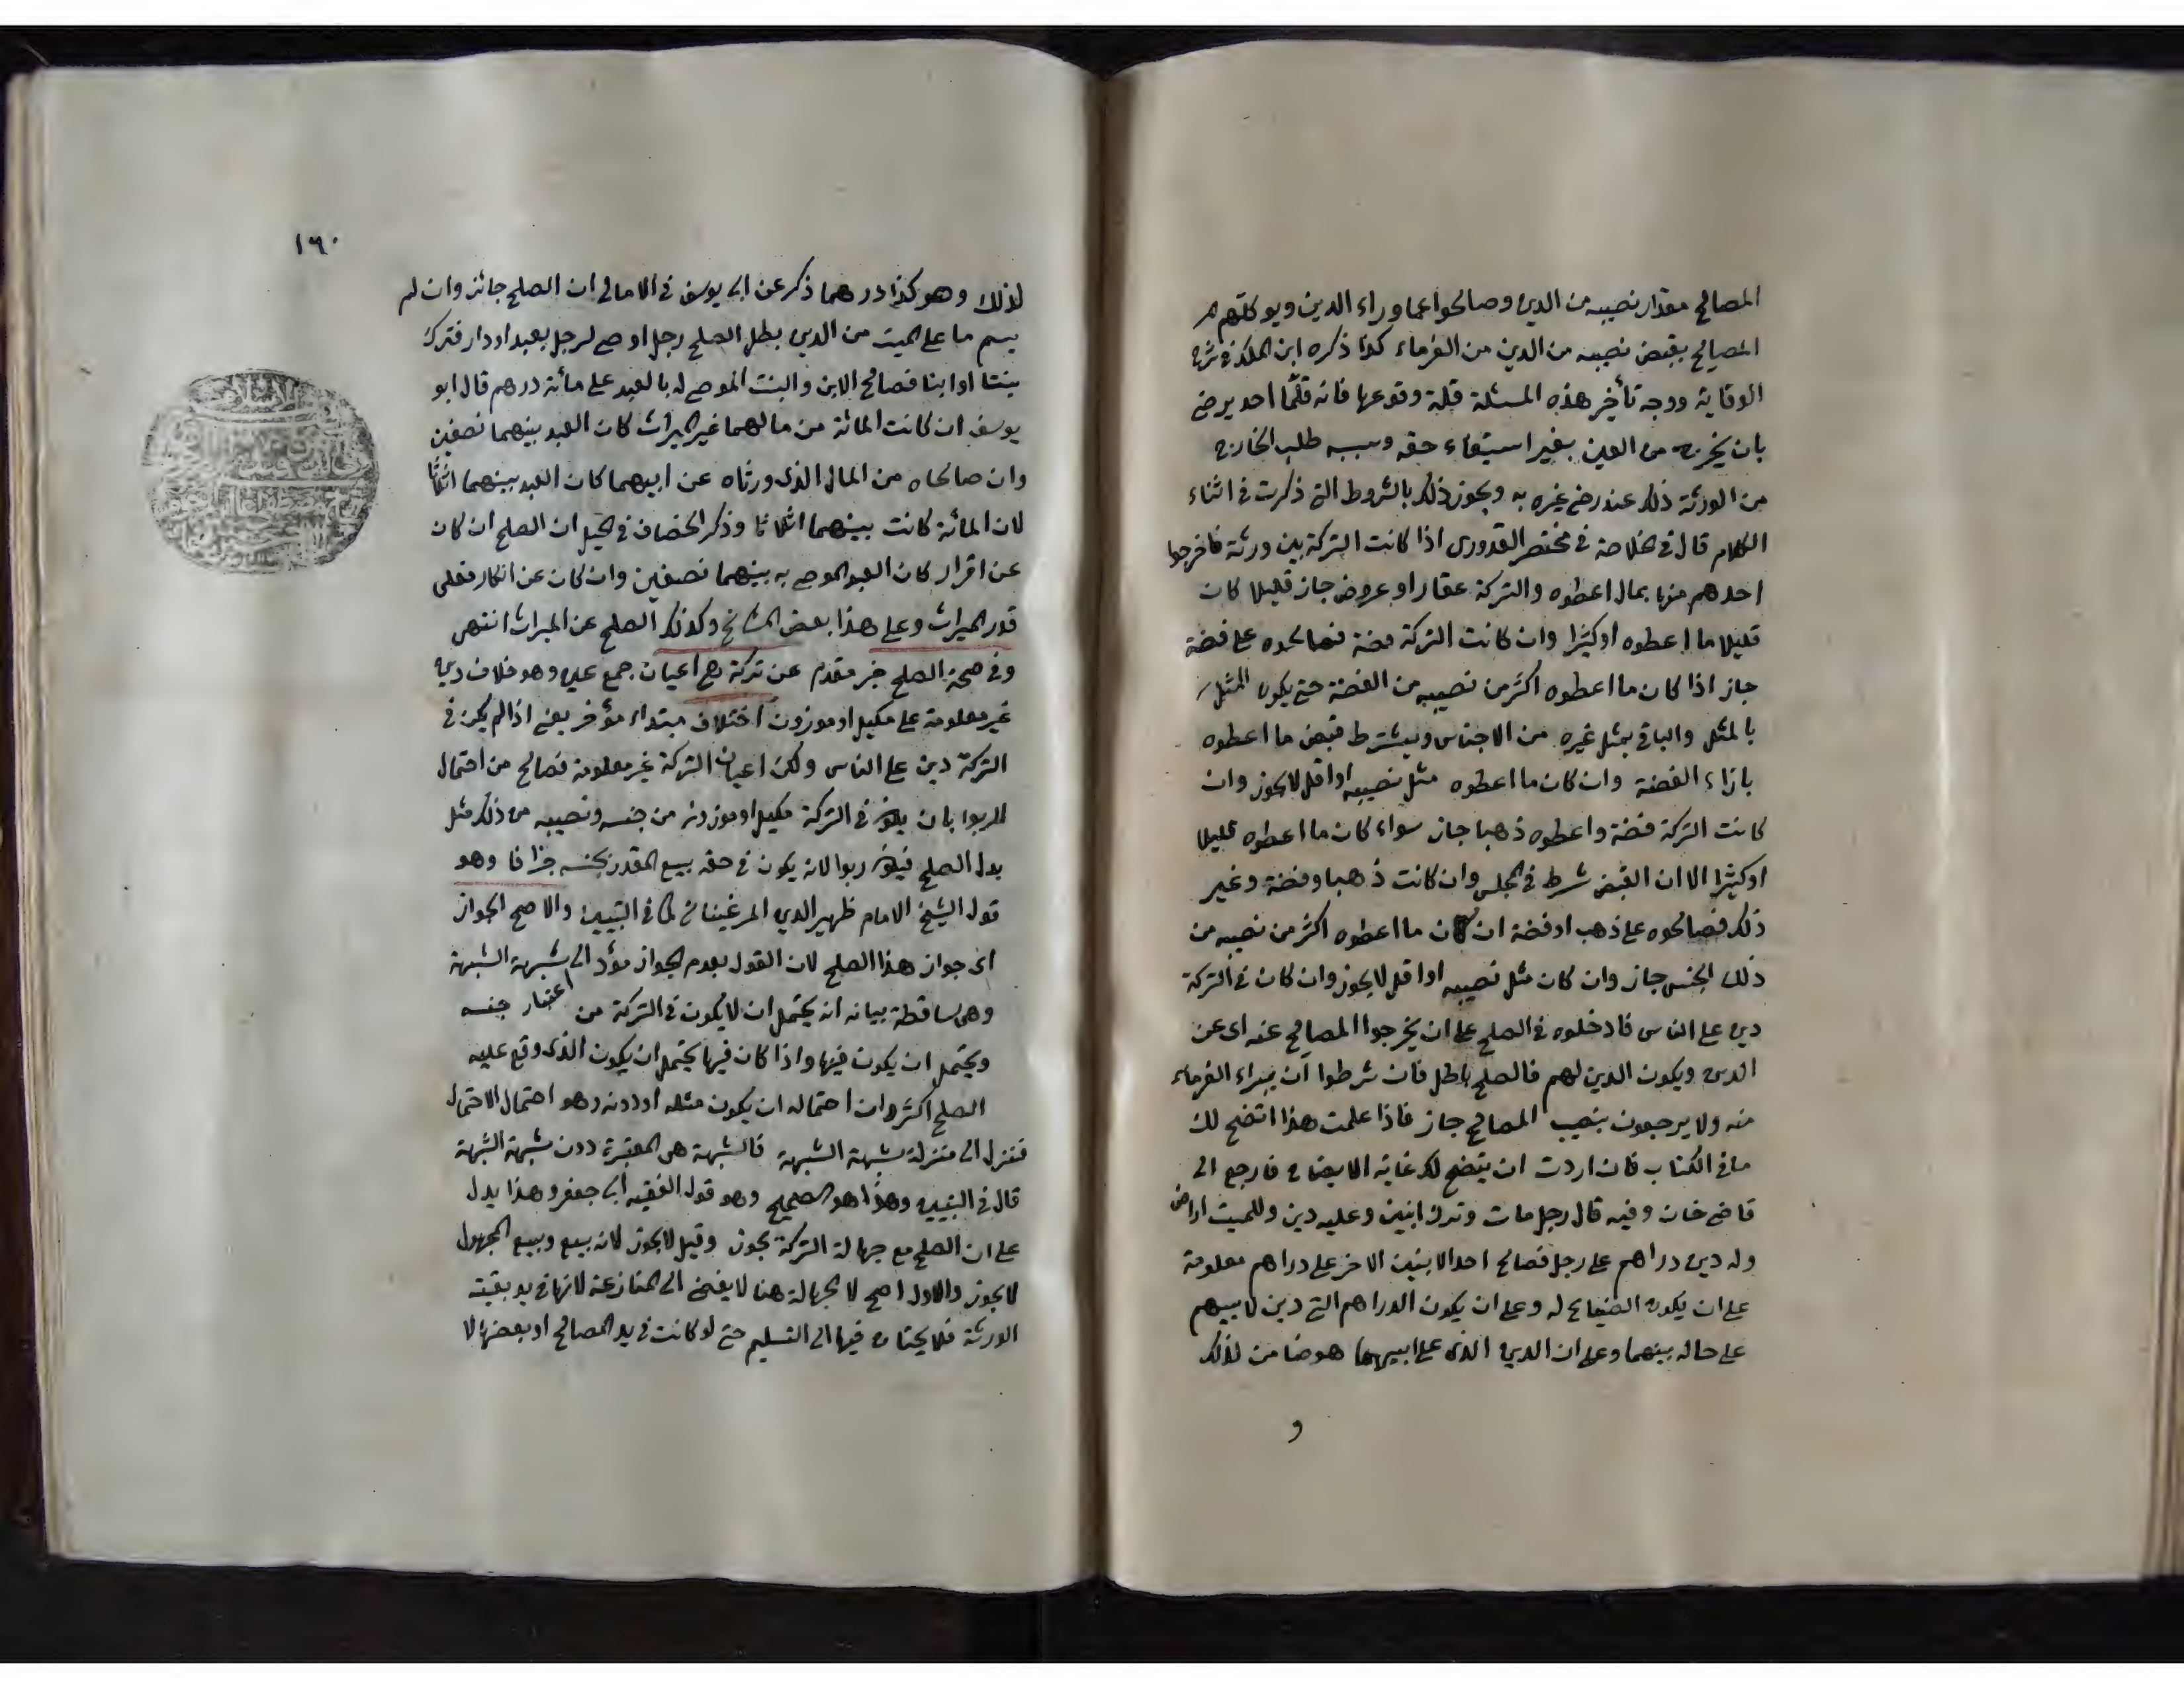 المصالح مقدار نصيبه من الدين وصالحوا عما وراء الدين ويوكلهم
المصالح بقبض نصيبه من الدين من الغرماء كذا ذكره ابن الملك في شرح
الوقاية ووجه تأخير هذه المسئلة قلة وقوعها فانه قلّما احد يرضى
بان يخرج من العين بغير استيفاء حقه وسببه طلب الخارج
من الورثة ذلك عند رضى غيره به ويجوز ذلك بالشروط التى ذكرت فى اثناء
الكلام قال فى خلاصة فى مختصر القدورى اذا كانت التركة بين ورثة فاخرجوا
احدهم منها بمال اعطوه والتركة عقار او عروض جاز قليلا كان
قليلا ما اعطوه او كثيرا وان كانت التركة فضة فصالحوه على فضة
جاز اذا كان ما اعطوه اكثر من نصيبه من الفضة حتى يكون المثل
بالمثل والباقى بمثل غيره من الاجناس ويشترط قبض ما اعطوه
بازاء الفضة وان كان ما اعطوه مثل نصيبه او اقل لا يجوز وان
كانت التركة فضة واعطوه ذهبا جاز سواء كان ما اعطوه قليلا
او كثيرا الا ان القبض شرط فى المجلس وان كانت ذهبا وفضة وغير
ذلك فصالحوه على ذهب او فضة ان كان ما اعطوه اكثر من نصيبه من
ذلك الجنس جاز وان كان مثل نصيبه او اقل لا يجوز وان كان فى التركة
دين على الناس فادخلوه فى الصلح على ان يخرجوا المصالح عنه اى عن
الدين ويكون الدين لهم فالصلح باطل فان شرطوا ان يبراء الغرماء
منه ولا يرجعون بنصيب المصالح جاز فاذا علمت هذا اتضح لك
ما فى الكتاب فان اردت ان يتضح لك غاية الايضاح فارجع الى
قاضى خان وفيه قال رجل مات وترك ابنين وعليه دين وللميت اراضى
وله دين دراهم على رجل فصالح احد الابنين الاخر على دراهم معلومة
على ان يكون الضياع له وعلى ان يكون الدراهم التى دين لابيهم
على حاله بينهما وعلى ان الدين الذى على ابيهما هو ضامن لذلك
و
١٦٠
لذلك وهو كذا درهما ذكر عن ابى يوسف فى الامالى ان الصلح جائز وان لم
يسم ما على الميت من الدين بطل الصلح رجل اوصى لرجل بعبد او دار فترك
بنتا او ابنا فصالح الابن والبنت الموصى له بالعبد على مائة درهم قال ابو
يوسف ان كانت المائة من مالهما غير الميراث كان العبد بينهما نصفين
وان صالحاه من المال الذى ورثاه عن ابيهما كان العبد بينهما اثلاثا
لان المائة كانت بينهما اثلاثا وذكر الخصاف فى الحيل ان الصلح ان كان
عن اقرار كان العبد الموصى به بينهما نصفين وان كان عن انكار فعلى
قدر الميراث وعلى هذا بعض المشائخ وكذلك الصلح عن الميراث انتهى
وفى صحة الصلح خبر مقدم عن تركة هى اعيان جمع عين وهو خلاف دين
غير معلومة على مكيل او موزون اختلاف مبتداء مؤخر يعنى اذا لم يكن فى
التركة دين على الناس ولكن اعيان التركة غير معلومة فصالح من احتمال
الربوا بان يكون فى التركة مكيل او موزون من جنسه ونصيبه من ذلك مثل
بدل الصلح فيكون ربوا لانه يكون فى حقه بيع المقدر بجنسه جزافا وهو
قول الشيخ الامام ظهير الدين المرغينانى كما فى التبيين والاصح الجواز
اى جواز هذا الصلح لان القول بعدم الجواز مؤد الى شبهة الشبهة
وهى ساقطة بيانه انه يحتمل ان لا يكون فى التركة من اعتبار جنسه
ويحتمل ان يكون فيها واذا كان فيها يحتمل ان يكون الذى وقع عليه
الصلح اكثر وان احتماله ان يكون مثله او دونه وهو احتمال الاحتمال
فتنزل الى منزلة شبهة الشبهة فالشبهة هى المعتبرة دون شبهة الشبهة
قال فى التبيين وهذا هو الصحيح وهو قول الفقيه ابى جعفر وهذا يدل
على ان الصلح مع جهالة التركة يجوز وقيل لا يجوز لانه بيع وبيع المجهول
لا يجوز والاول اصح لا الجهالة هنا لا يفضى الى المنازعة لانها فى يد بقية
الورثة فلا يحتاج فيها الى التسليم حتى لو كانت فى يد المصالح او بعضها لا